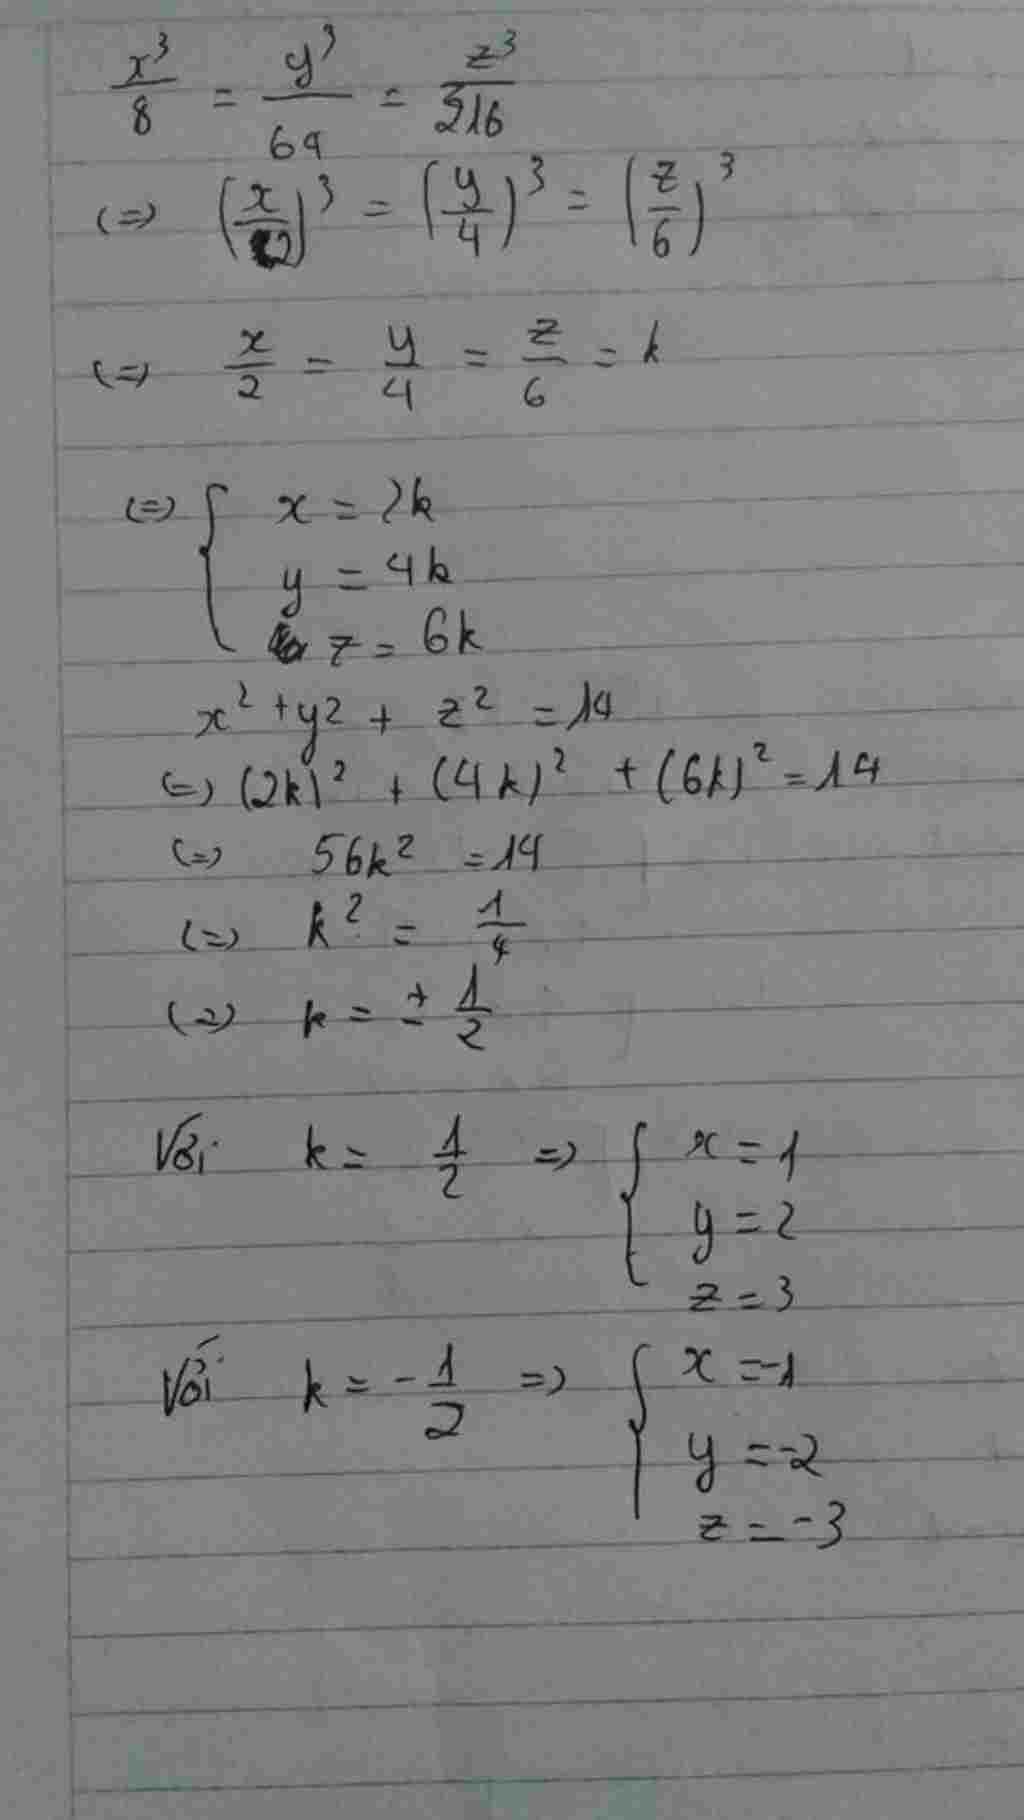 x³/8 = y³/64 = z³/216
(=) (x/2)³ = (y/4)³ = (z/6)³
(=) x/2 = y/4 = z/6 = k
(=) { x = 2k
y = 4k
z = 6k
x² + y² + z² = 14
(=) (2k)² + (4k)² + (6k)² = 14
(=) 56k² = 14
(=) k² = 1/4
(=) k = ± 1/2
Với k = 1/2 => { x = 1
y = 2
z = 3
Với k = - 1/2 => { x = -1
y = -2
z = -3